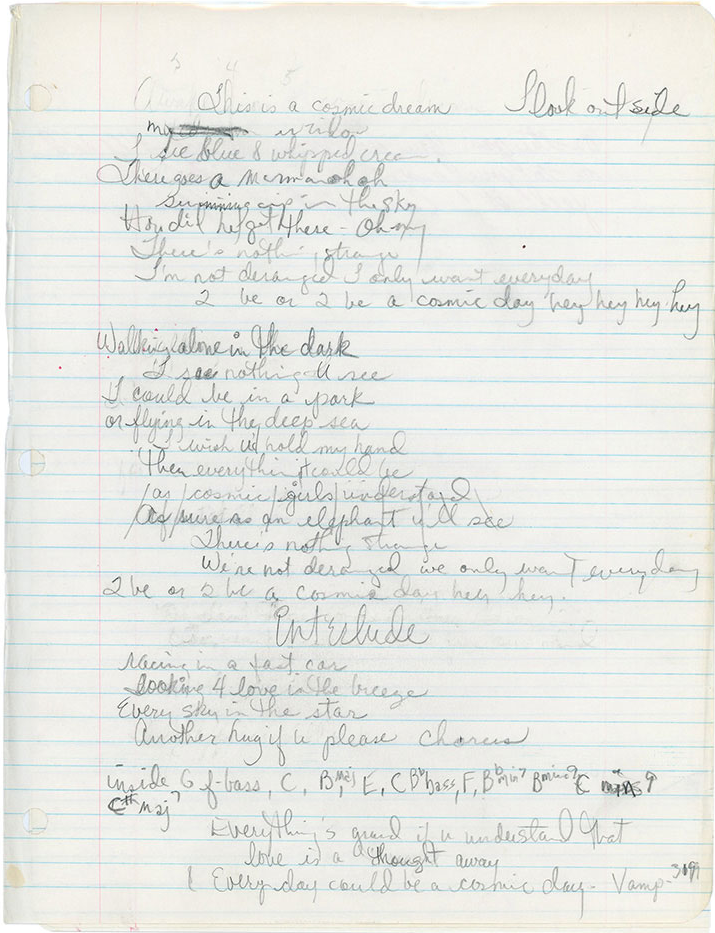 This is a cosmic dream I look out side
my window
I see blue & whipped cream.
There goes a merman oh oh
swimming in the sky
How did he get there - Oh my
There's nothin strange
I'm not deranged I only want everyday
2 be or 2 be a cosmic day hey hey hey hey
Walking alone in the dark
I see nothing U see
I could be in a park
or flying in the deep sea
I wish u hold my hand
then everythin it could be
as cosmic girls understand
As sure as an elephant u'll see
There's nothing strange
We're not deranged we only want everyday
2 be or 2 be a cosmic day hey hey.
Interlude
racing in a fast car
looking 4 love in the breeze
Every sky in the star
Another hug if u please chorus
inside G f-bass, C, B maj E, C Bb bass, F, Bb min7 B min7 C
C# maj7
Everything's grand if u understand that
love is a thought away
Every day could be a cosmic day - Vamp -